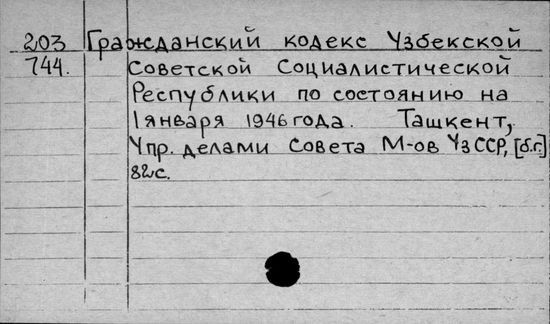 203 Гражданский кодекс Узбекской
744. Советской Социалистической
Республики по состоянию на
1 января 1946 года. Ташкент,
Упр. делами Совета М-ов УзССР, [б.г.]
82 с.